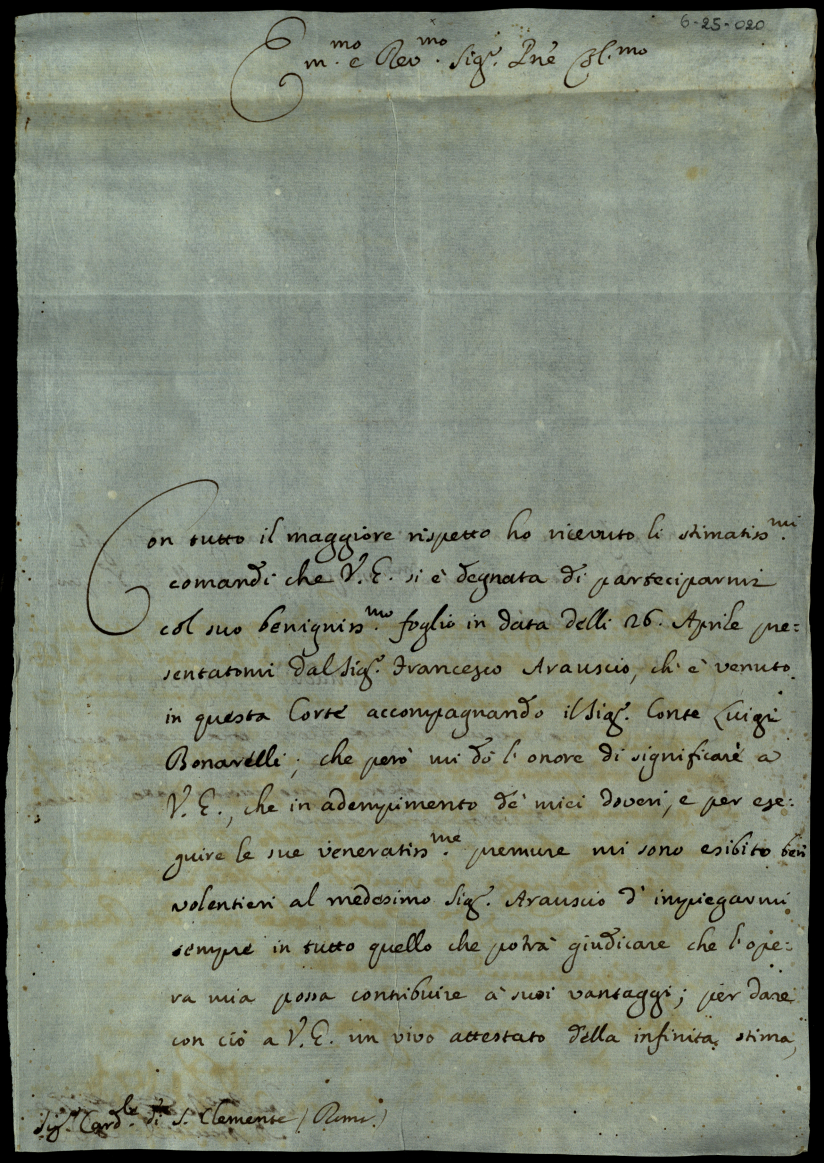 6-25-020
Em.mo e Rev.mo Sig.r Pne Col.mo
Con tutto il maggiore rispetto ho ricevuto li stimatiss.mi
comandi che V. E. si è degnata di parteciparmi
col suo benigniss.mo foglio in data delli 26. Aprile pre=
sentatomi dal Sig.r Francesco Arauscio, ch' è venuto
in questa Corte accompagnando il Sig.r Conte Luigi
Bonarelli; che però mi dò l' onore di significare a
V. E., che in adempimento de' miei doveri, e per ese=
guire le sue veneratiss.me premure mi sono esibito ben
volentieri al medesimo Sig.r Arauscio d' impiegarmi
sempre in tutto quello che potrà giudicare che l' ope=
ra mia possa contribuire a' suoi vantaggi; per dare
con ciò a V. E. un vivo attestato della infinita stima,
Sig.r Card.le di S. Clemente (Roma)